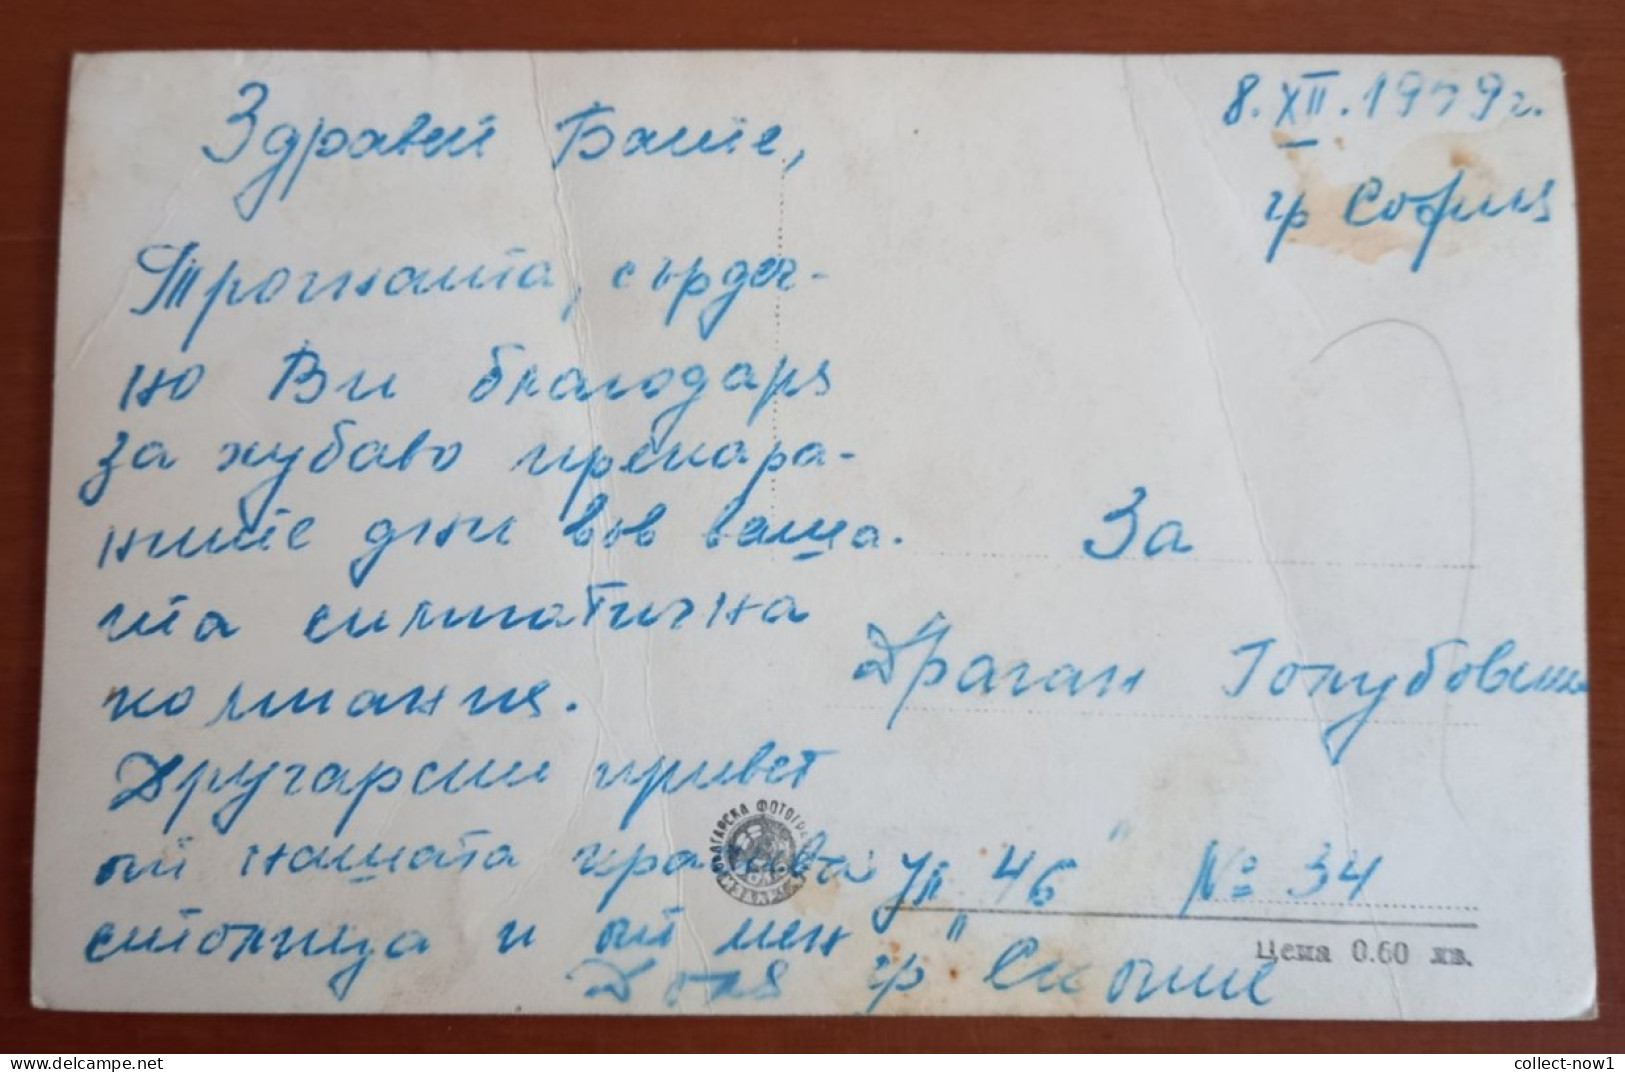 Здравей Бате,
Трогната, сърдеч-
но Ви благодаря
за хубаво прекара-
ните дни във ваша-
та симпатична
компания.
Другарски привет
от нашата красива
столица и от мен
8.XII.1959г.
гр София
За
Драган Голубовски
ул "46" № 34
гр "Скопие
Цена 0.60 лв.
БЪЛГАРСКА ФОТОГРАФИЯ
collect-now1